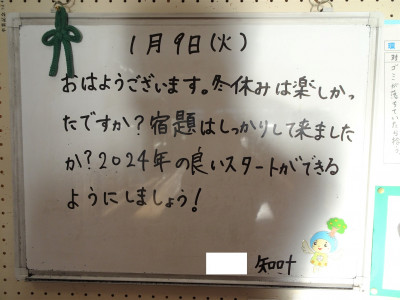 1月9日(火)
おはようございます。冬休みは楽しかっ
たですか?宿題はしっかりして来ました
か?2024年の良いスタートができる
ようにしましょう!
知叶